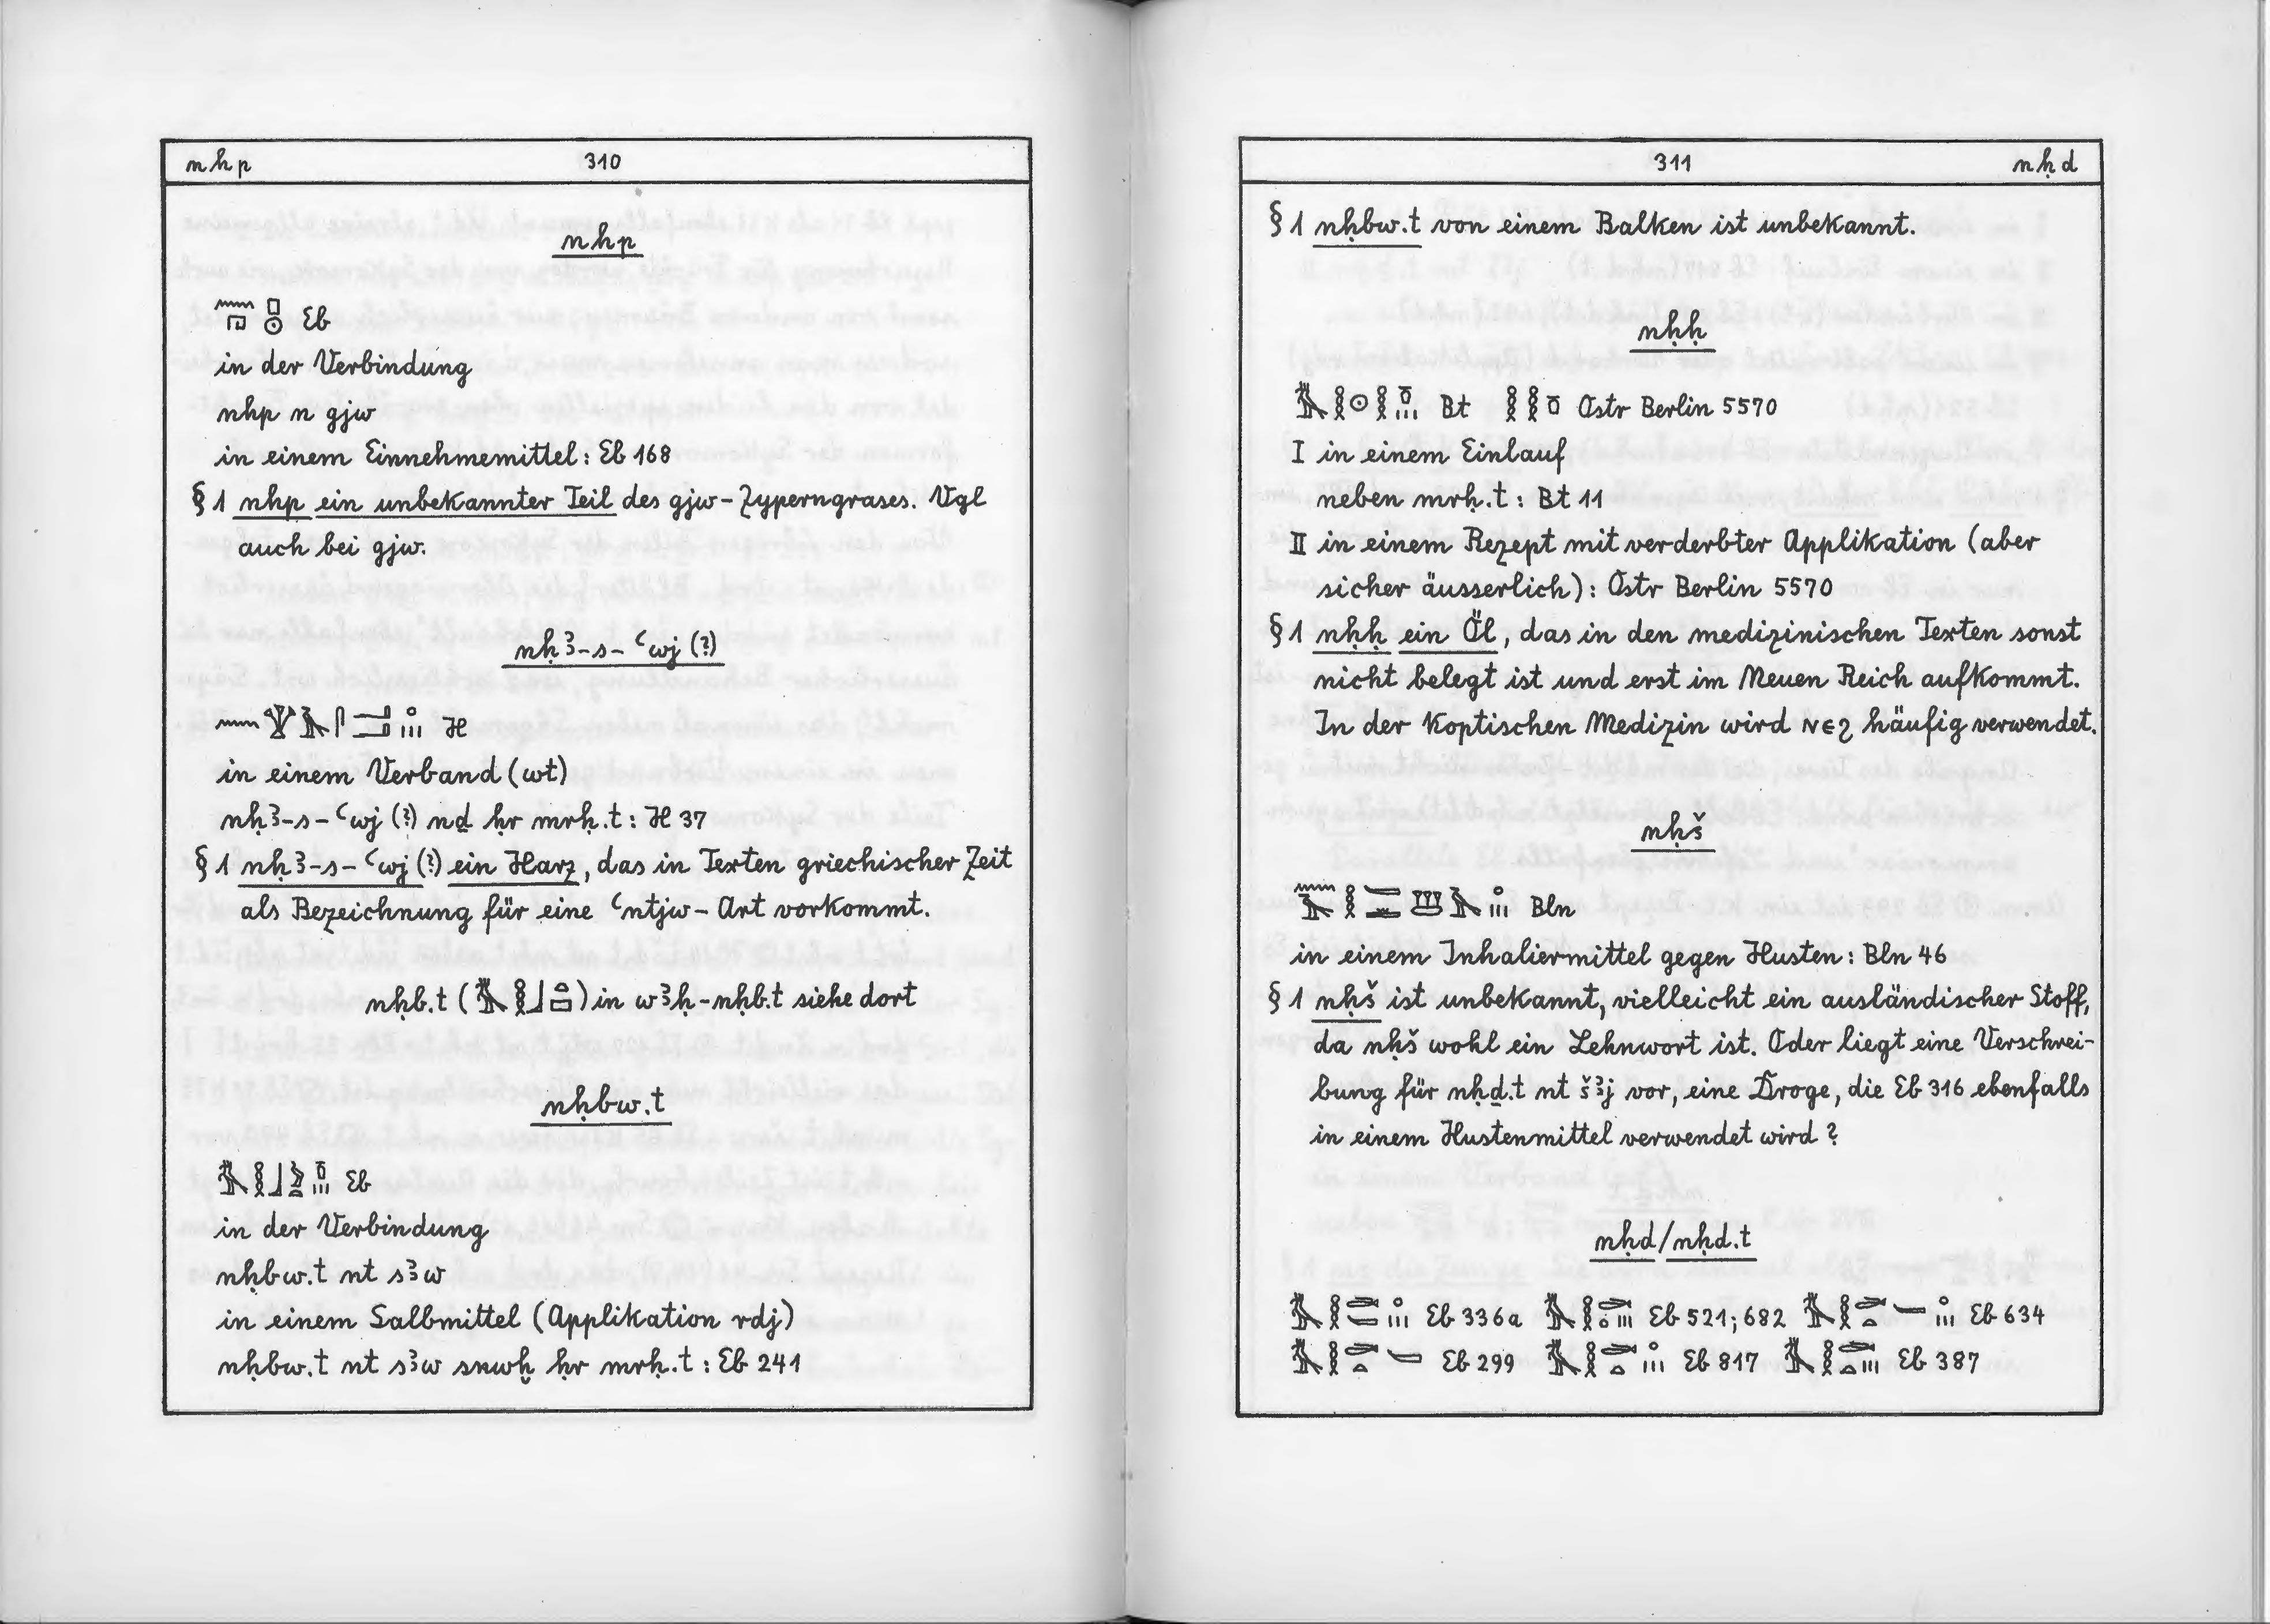 nhp 310
nhp
Eb
in der Verbindung
nhp n gjw
in einem Einnehmemittel: Eb 168
§ 1 nhp ein unbekannter Teil des gjw-Zyperngrases. Vgl
auch bei gjw.
nḥꜣ-s-ꜥwj (?)
H
in einem Verband (wt)
nḥꜣ-s-ꜥwj (?) nḏ ḥr mrḥ.t: H 37
§ 1 nḥꜣ-s-ꜥwj (?) ein Harz, das in Texten griechischer Zeit
als Bezeichnung für eine ꜥntjw-Art vorkommt.
nḥb.t ( ) in wꜣḥ-nḥb.t siehe dort
nḥbw.t
Eb
in der Verbindung
nḥbw.t nt sꜣw
in einem Salbmittel (Applikation rdj)
nḥbw.t nt sꜣw snwḫ ḥr mrḥ.t: Eb 241
311 nḥd
§ 1 nḥbw.t von einem Balken ist unbekannt.
nḥḥ
Bt Ostr Berlin 5570
I in einem Einlauf
neben mrḥ.t: Bt 11
II in einem Rezept mit verderbter Applikation (aber
sicher äusserlich): Ostr Berlin 5570
§ 1 nḥḥ ein Öl, das in den medizinischen Texten sonst
nicht belegt ist und erst im Neuen Reich aufkommt.
In der koptischen Medizin wird ⲛⲉϩ häufig verwendet.
nḥš
Bln
in einem Inhaliermittel gegen Husten: Bln 46
§ 1 nḥš ist unbekannt, vielleicht ein ausländischer Stoff,
da nḥš wohl ein Lehnwort ist. Oder liegt eine Verschrei-
bung für nḥḏ.t nt šꜣj vor, eine Droge, die Eb 316 ebenfalls
in einem Hustenmittel verwendet wird?
nḥd/nḥd.t
Eb 336a Eb 521; 682 Eb 634
Eb 299 Eb 817 Eb 387